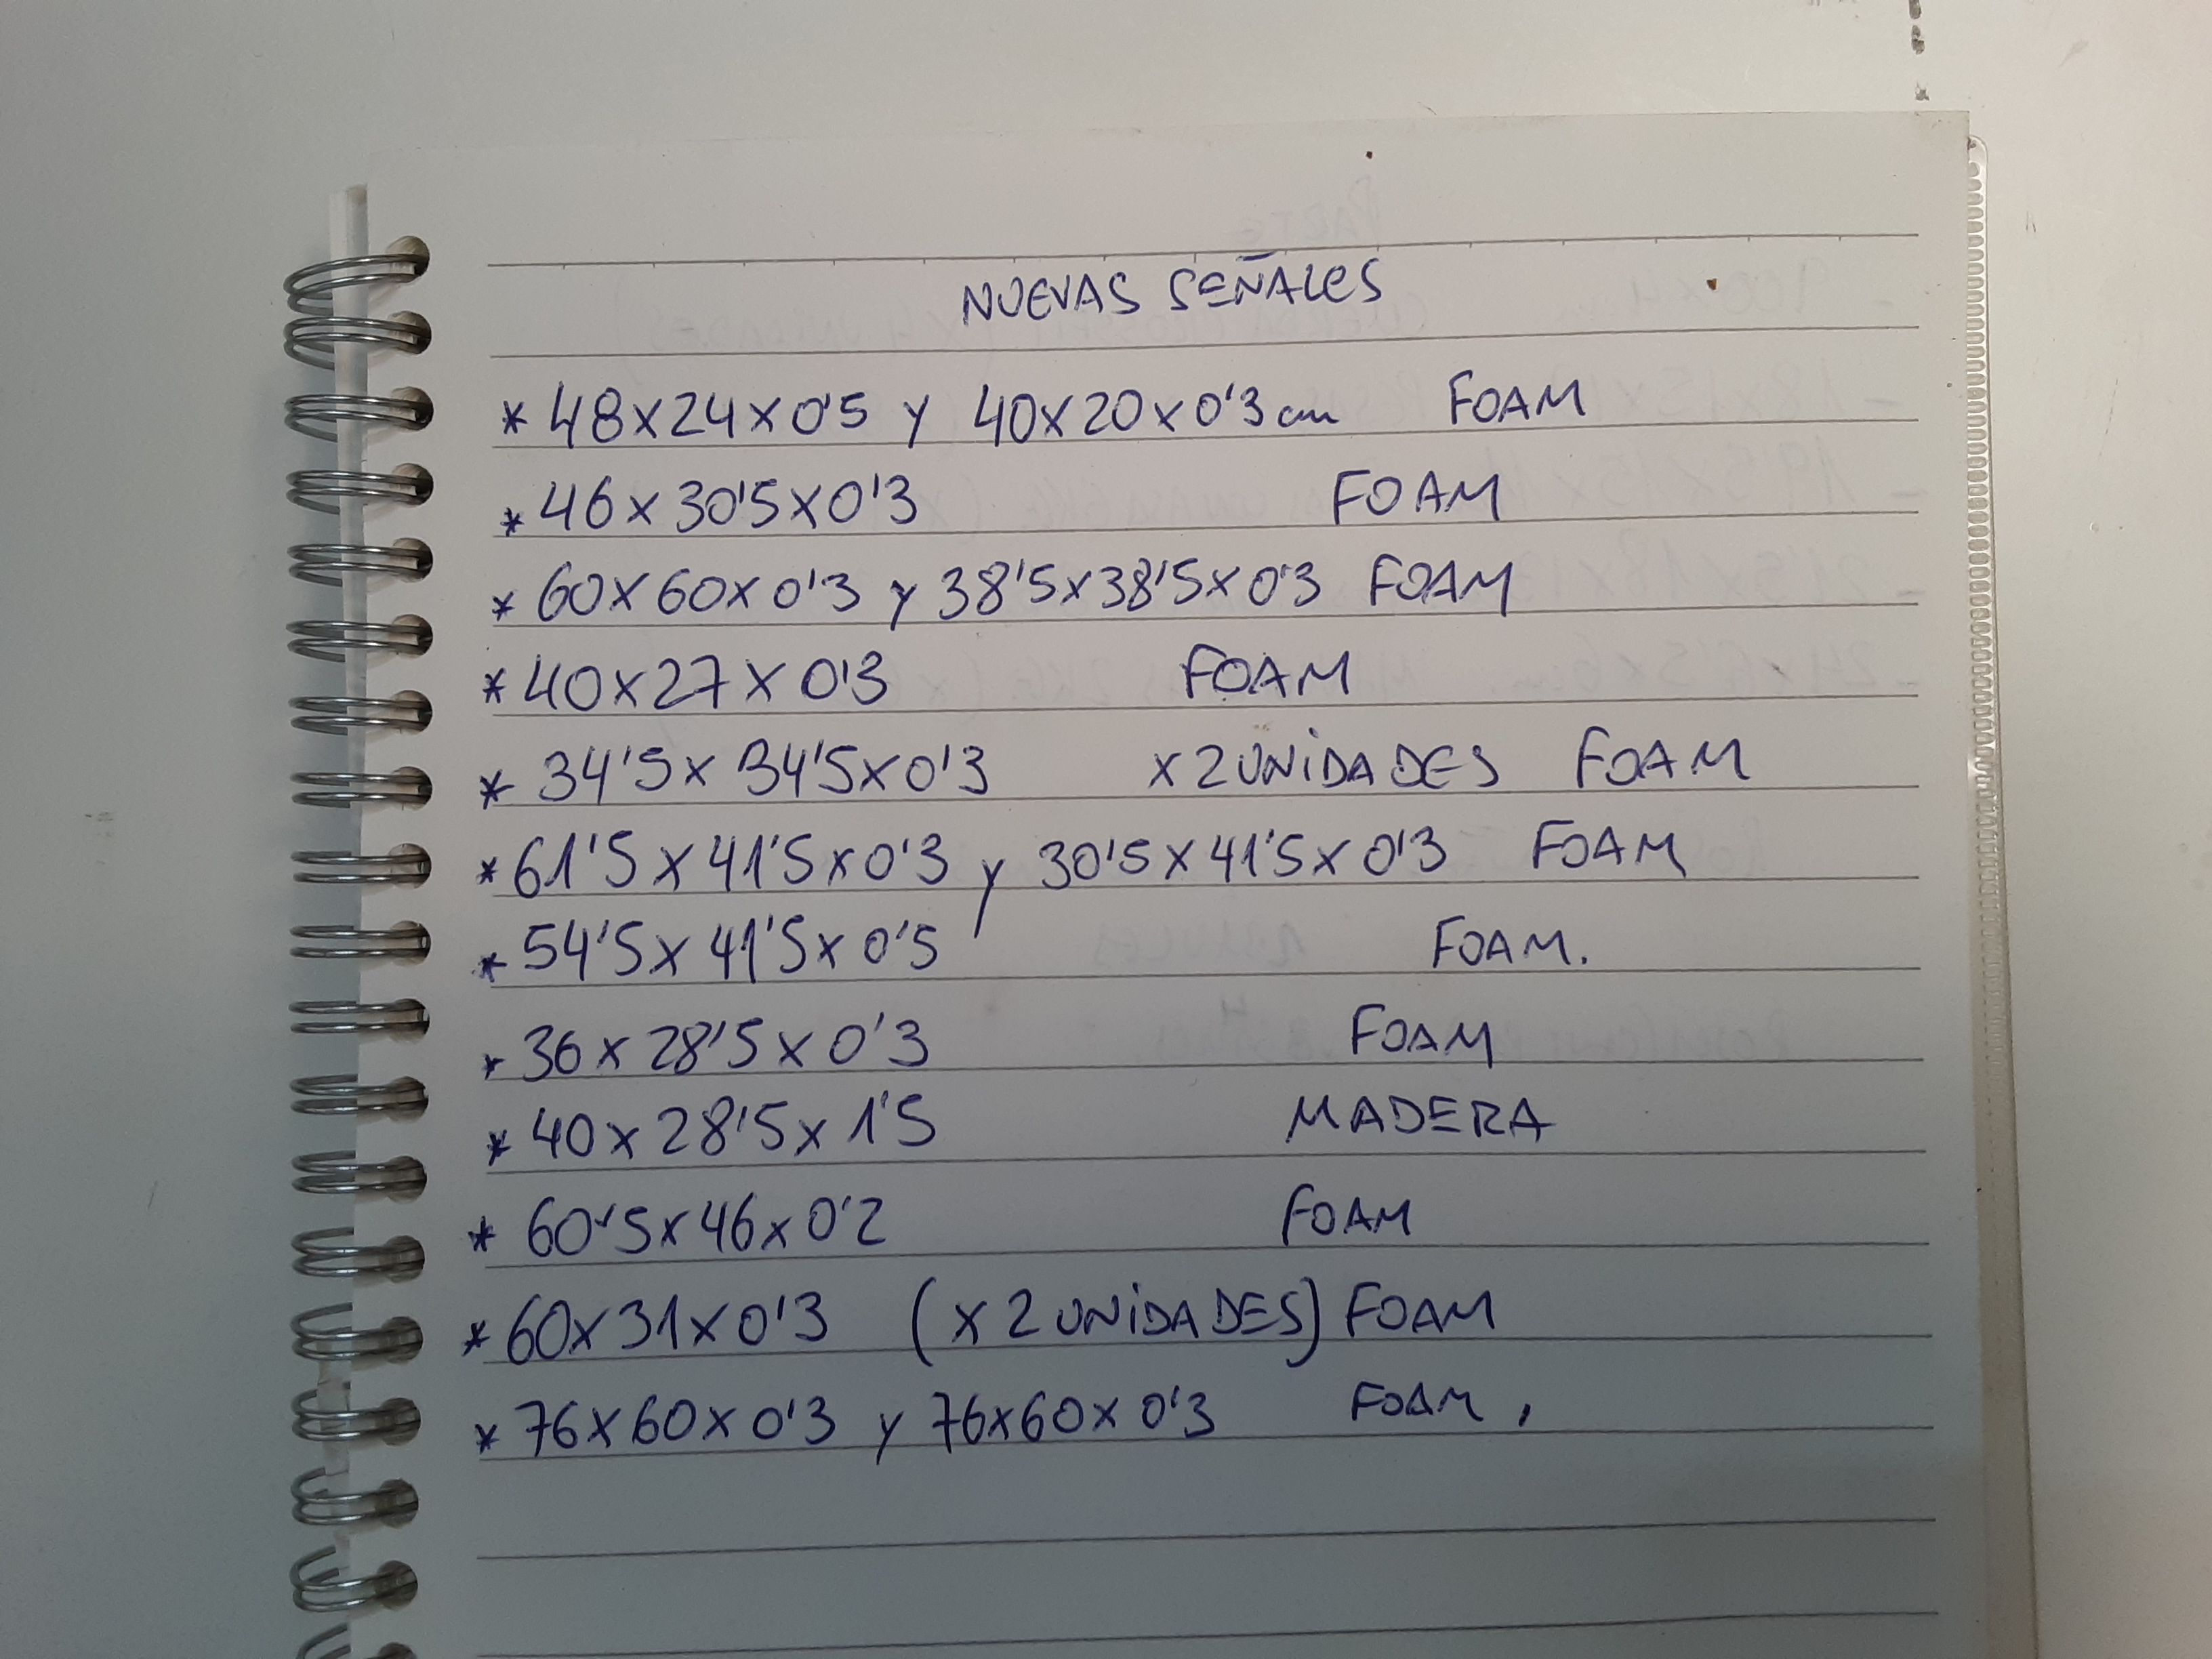 NUEVAS SEÑALES
* 48x24x0'5 y 40x20x0'3 cm FOAM
* 46x30'5x0'3 FOAM
* 60x60x0'3 y 38'5x38'5x0'3 FOAM
* 40x27x0'3 FOAM
* 34'5x34'5x0'3 x2 UNIDADES FOAM
* 61'5x41'5x0'3 y 30'5x41'5x0'3 FOAM
* 54'5x41'5x0'5 FOAM.
* 36x28'5x0'3 FOAM
* 40x28'5x1'5 MADERA
* 60'5x46x0'2 FOAM
* 60x31x0'3 (x2 UNIDADES) FOAM
* 76x60x0'3 y 76x60x0'3 FOAM,